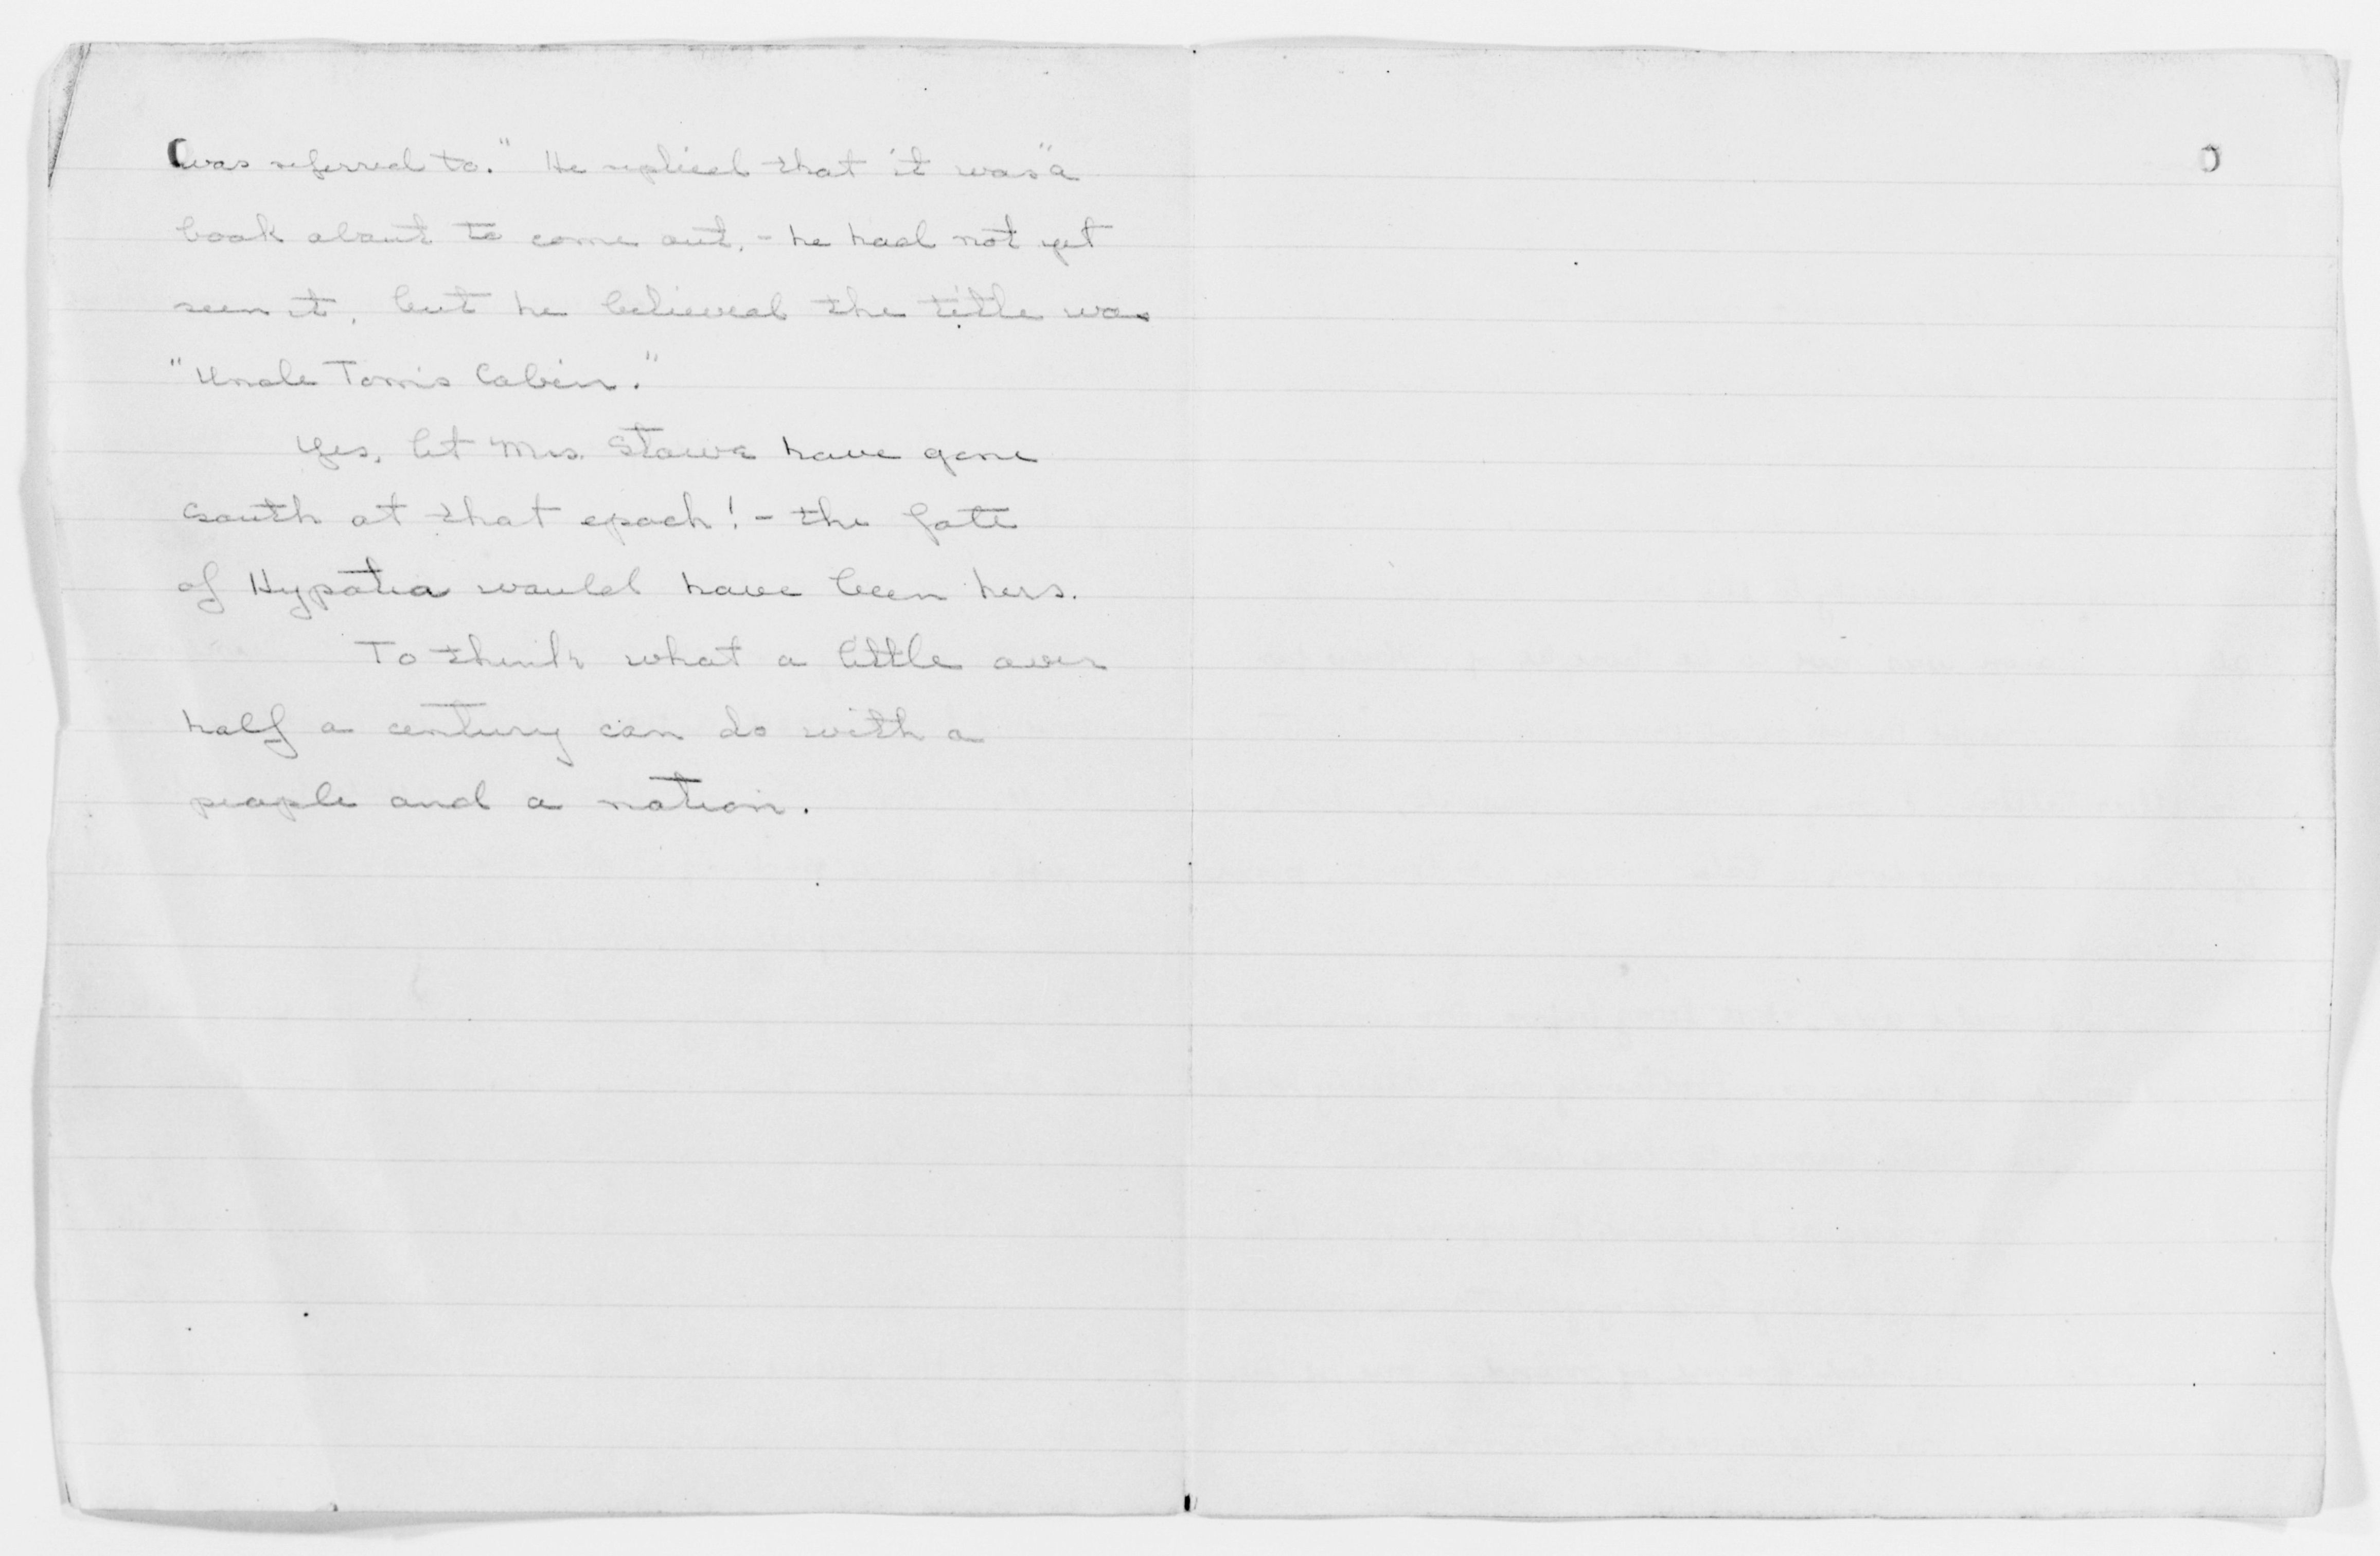 was referred to." He replied that it was "a
book about to come out, - he had not yet
seen it, but he believed the title was
"Uncle Tom's Cabin."
Yes, let Mrs. Stowe have gone
South at that epoch! - the fate
of Hypatia would have been hers.
To think what a little over
half a century can do with a
people and a nation.